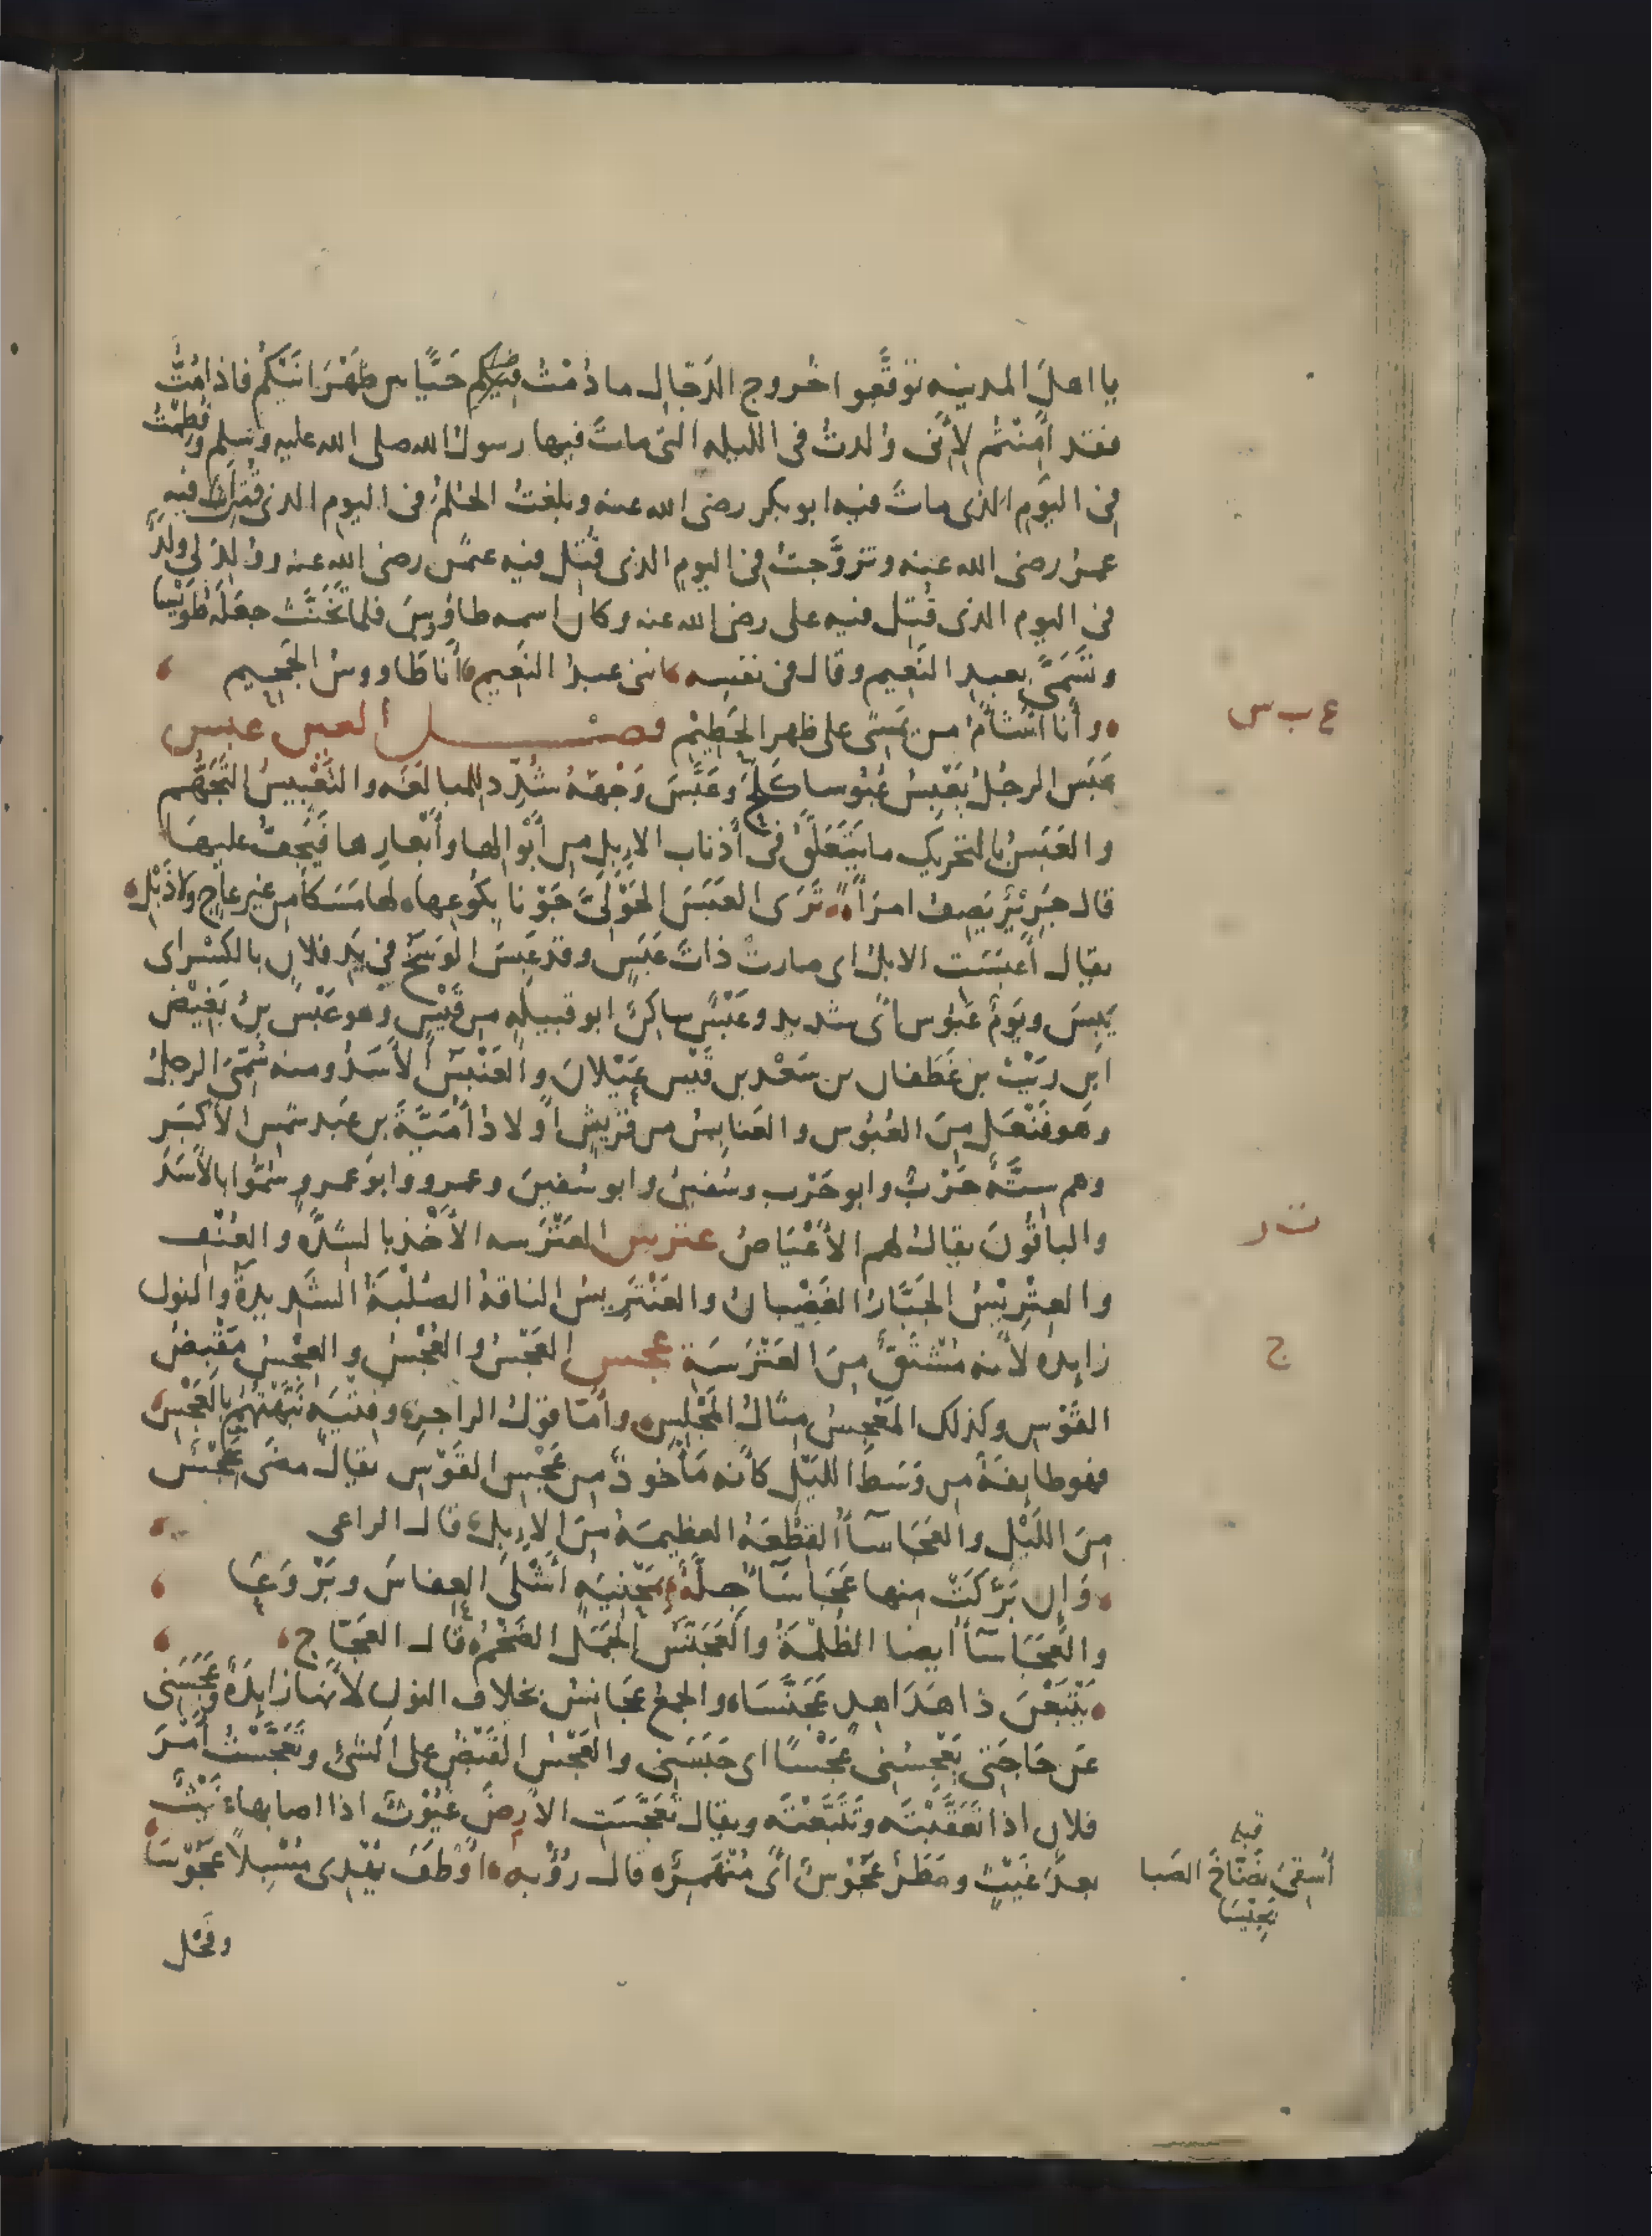 يا اهلَ المدينه توقَّعوا خُروج الدَجّال ما دُمْتُ فيكم حَيًّا بين ظَهْرَانَيْكُمْ فاذا مُتُّ
فقد أَمِنْتُم لأَنّى وُلدتُ فى الليله التى ماتَ فيها رسولُ الله صلى الله عليه وسلم وفُطِمْتُ
فى اليَوم الذى ماتَ فيه ابو بكر رضى الله عنه وبلغتُ الحُلمُ فى اليوم الذى قُتِلَ فيه
عمرُ رضى الله عنه وتزوَّجتُ فى اليوم الذى قُتِل فيه عثمن رضى الله عنه ووُلِدَ لى ولَدٌ
فى اليوم الذى قُتِل فيه على رضى الله عنه وكان اسمه طاؤوسَ فلما تَخَنَّثَ جعَلَهُ طُوَيْسا
وتَسَمَّى بعبد النَعيم وقال فى نفسه اننى عبدُ النَعيم أَنا طَاووسُ الجَحيم
وأَنا اشْأَمُ من يَمشى على ظهر الحَطِيْم فصْـــل العين عبس
عَبَسَ الرجُلُ يَعْبِسُ عُبُوسا كَلَحَ وعَبَّسَ وَجْهَهُ شُدِّد للمبالغَه والتَعْبِيسُ التَجَهُّم
والعَبَسُ بالتحريك ما يَتَعَلَّقُ فى أَذناب الإِبِلِ من أَبْوالها وأَبْعارِها فَيَجِفُّ عليهَا
قال جَرِيْرٌ يَصِف امرَأَةً تَرَى العَبَسَ الحَوْلِىَّ جَوْنا بِكُوعِها لها مَسَكا من غير عاجٍ ولا ذَبْلِ
يقال أَعبَسَت الابلُ اى صارت ذاتَ عَبَسٍ وقد عَبِسَ الوَسَخُ فى يَدِ فلان بالكسْر اى
يَبِسَ ويَوْمٌ عَبُوس أَى شديد وعَبْسٌ ساكِنٌ ابو قبيلهٍ من قَيْسٍ وهو عَبْسُ بنُ بَغِيْض
ابن رَيْث بن غَطَفان بن سَعْد بن قَيْسِ عَيْلانَ والعَنْبَسُ الأَسَدُ ومنه سُمِّىَ الرجلُ
وهو فَنْعَل مِنَ العُبُوس والعَنابِسُ من قُرَيشٍ أَولادُ أُمَيَّةَ بن عَبد شمس الأَكْبَر
وهم ستَّةٌ حَرْبٌ وابو حَرْب وسُفين وابو سُفينَ وعمرو وابو عمرو سُمُّوا بالأَسَدِ
والباقُونَ يقالُ لهم الأَعْيَاصُ عترس العَتْرَسه الأَخذ بالشِدَّه والعُنْف
والعِتْرِيْسُ الجَبَّارُ الغَضْبانُ والعَنْتَرِيسُ الناقةُ الصُلْبَةُ الشَديدةُ والنون
زايدهٌ لأَنه مُشْتَقٌّ مِنَ العَتْرَسَة عجس العَجْسُ والعُجْسُ والعِجْسُ مَقْبِضُ
القَوْسِ وكذلك المَعْجِسُ مثالُ المَجْلِس وأَمّا قولُ الراجز وفتيَةٍ نَبَّهْتُهُمْ بالعَجْسِ
فهو طايفةٌ من وَسَط الليْل كأَنه مَأْخوذٌ من عَجْسِ القَوْسِ يقال مضَى عَجْسٌ
مِنَ اللَيْل والعَجَاسآءُ القِطْعَةُ العظيمَةُ مِنَ الإِبِلِ قال الراعى
وَإِن بَرَكَتْ منها عَجَاسَآءُ جِلَّةٌ بمَحْنِيَهٍ أَشْلَى العِفاسَ وبَرْوَعَا
والعَجَاسآءُ ايضا الظُلمَةُ والعَجَنَّسُ الجَمَل الضَخْمُ قال العَجّاج
يَتْبَعْنَ ذا هَدَاهِدٍ عَجَنَّسَا والجمعُ عَجَانِسُ بحذف النون لأَنها زايدةٌ وعَجَسَنى
عَن حَاجَتى يَعْجِسُنى عَجْسًا اى حَبَسَنى والعَجْسُ القَبْضُ على الشئ وتَعَجَّسْتُ أَمْرَ
فلان اذا تَعَقَّبْتَه وتَتَبَّعْتَه ويقال تَعَجَّسَت الأَرضَ غُيُوثٌ اذا اصابها غَيْثٌ
بعدَ غَيْثٍ ومَطَرٌ عَجُوْسٌ أَى مُنْهَمِرٌ قال رُؤْبه أَوْطَفَ يَهْدِى مُسْبِلاً عَجُوْسَا
وفَحْل
ع ب س
ت ر
ج
قبله
أُسْقِىَ نَضّاخَ الصَبا
بَجِيْسَا